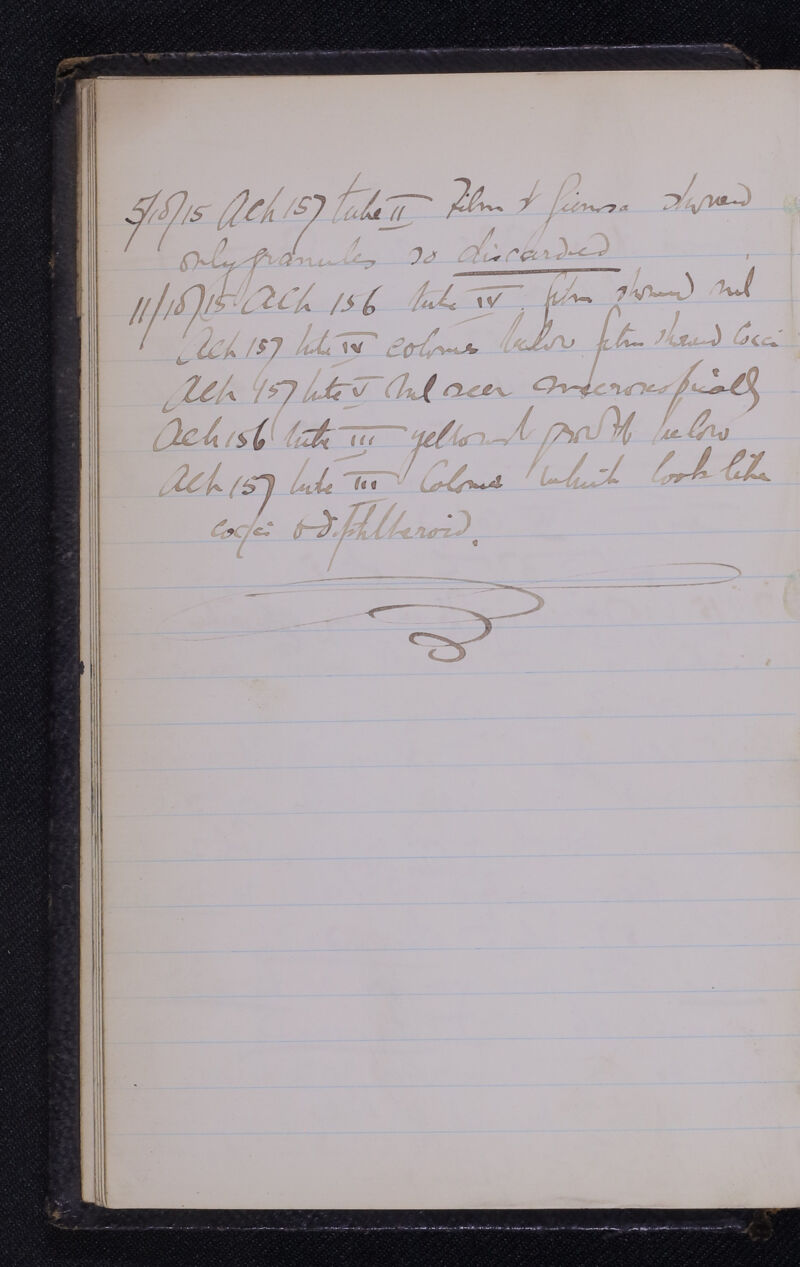 5/10/15 Ach 157 tube II Film & Giemsa showed
only granules so discarded
11/10/15 Ach 156 tube IV film showed nil
Ach 157 tube IV colonies below film showed Cocci
Ach 157 tube V Nil seen macroscopically
Ach 156 tube III growth below
Ach 157 tube III Colonies which look like
cocci diphtheroid.